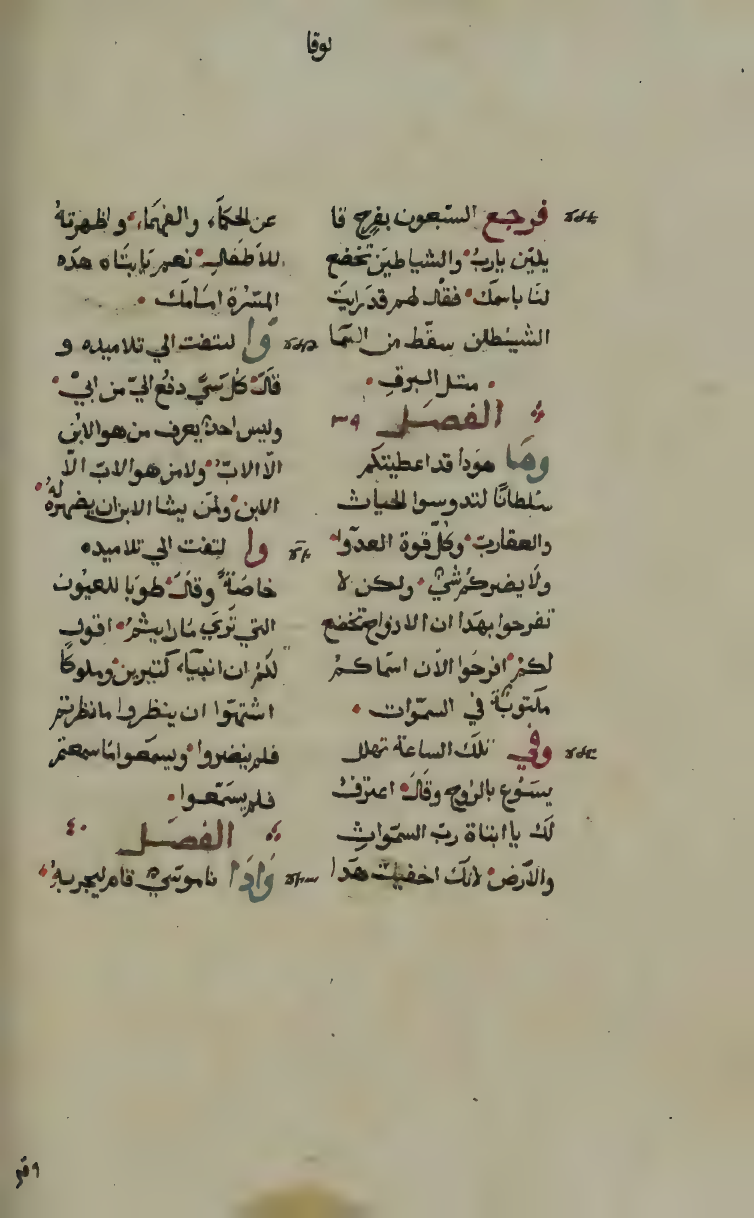 لوقا
فرجع السبعون بفرح قا
يلين يارب والشياطين تخضع
لنا باسمك فقال لهم قد رايت
الشيطان سقط من السما
متل البرق
الفصل ٣٩
وها هودا قد اعطيتكم
سلطانا لتدوسوا الحيات
والعقارب وكل قوة العدوا
ولا يضركم شي ولكن لا
تفرحوا بهدا ان الارواح تخضع
لكم افرحوا الان اسماكم
مكتوبة في السموات
وفي تلك الساعة تهلل
يسوع بالروح وقال اعترف
لك يا ابتاة رب السموات
والارض لانك اخفيت هدا
عن الحكماء والفهماء واظهرته
للاطفال نعم يا ابتاه هده
المسرة امامك
وا لتفت الي تلاميده و
قال كل شي دفع الي من ابي
وليس احد يعرف من هو الابن
الا الاب ولا من هو الاب الا
الابن ولمن يشا الابن ان يضهره له
وا لتفت الي تلاميده
خاصة وقال طوبا للعيون
التي تري ما رايتم اقول
لكم ان انبياء كتيرين وملوكا
اشتهوا ان ينظروا ما نظرتم
فلم ينضروا ويسمعوا ما سمعتم
فلم يسمعوا
الفصل ٤٠
وادا ناموسي قام ليجربه